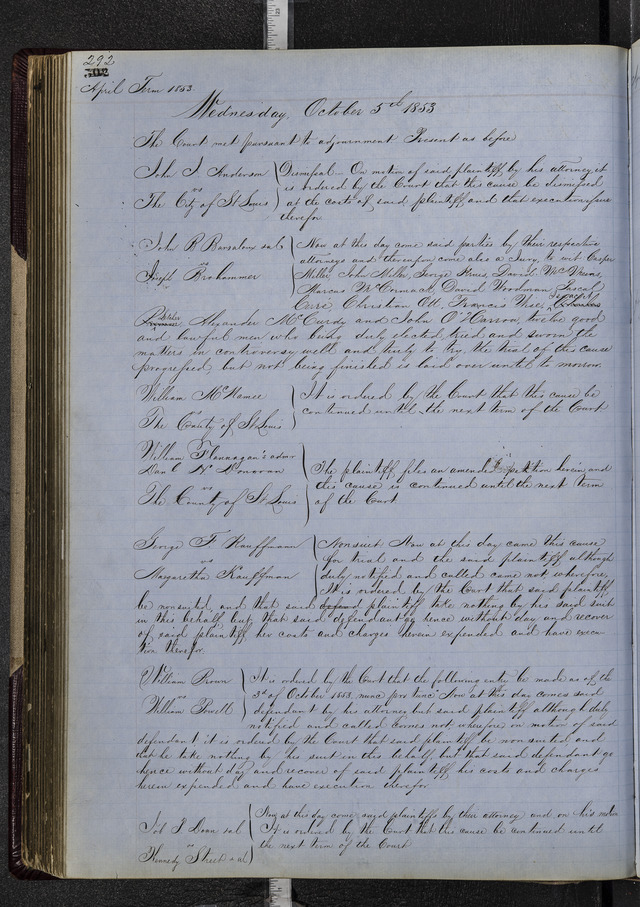 292
April Term 1853
Wednesday, October 5th 1853
The Court met pursuant to adjournment Present as before
John J Anderson
vs
The City of St Louis
Dismissal On motion of said plaintiff by his attorney it
is ordered by the Court that this cause be dismissed
at the costs of said plaintiff and that execution issue
therefor
John B
vs
Joseph Brohammer
Now at this day come said parties by their respective
attorneys and thereupon come also a Jury, to wit Casper
Miller, John Miller, George
Marcus McCormack, David Woodman, Pascal
Carr, Christian Ott, Francis
Alexander McCurdy and John O'Harron, twelve good
and lawful men who being duly elected, tried and sworn the
matters in controversy well and truly to try, the trial of this cause
progressed, but not being finished is laid over until to morrow.
William McNamee
vs
The County of St Louis
It is ordered by the Court that this cause be
continued until the next term of the Court
William Flannagan's admr
Danl H Donovan
vs
The County of St Louis
The plaintiff files an amended petition herein and
this cause is continued until the next term
of the Court
George F Kauffmann
vs
Margaretha Kauffman
Nonsuit Now at this day came this cause
for trial and the said plaintiff although
duly notified and called came not wherefore,
It is ordered by the Court that said plaintiff
be nonsuited, and that said plaintiff take nothing by his said suit
in this behalf but that said defendant go hence without day and recover
of said plaintiff her costs and charges herein expended and have execu
tion therefor.
William Brown
vs
William Powell
It is ordered by the Court that the following entry be made as of the
3d of October 1853, nunc pro tunc Now at this day comes said
defendant by his attorney and said plaintiff although duly
notified and called comes not wherefore on motion of said
defendant it is ordered by the Court that said plaintiff be nonsuited, and
that he take nothing by his suit in this behalf, but that said defendant go
hence without day and recover of said plaintiff his costs and charges
herein expended and have execution therefor
Doan et al
vs
Kennedy et al
Now at this day come said plaintiffs by their attorney and on his motion
It is ordered by the Court that the cause be continued until
the next term of the Court